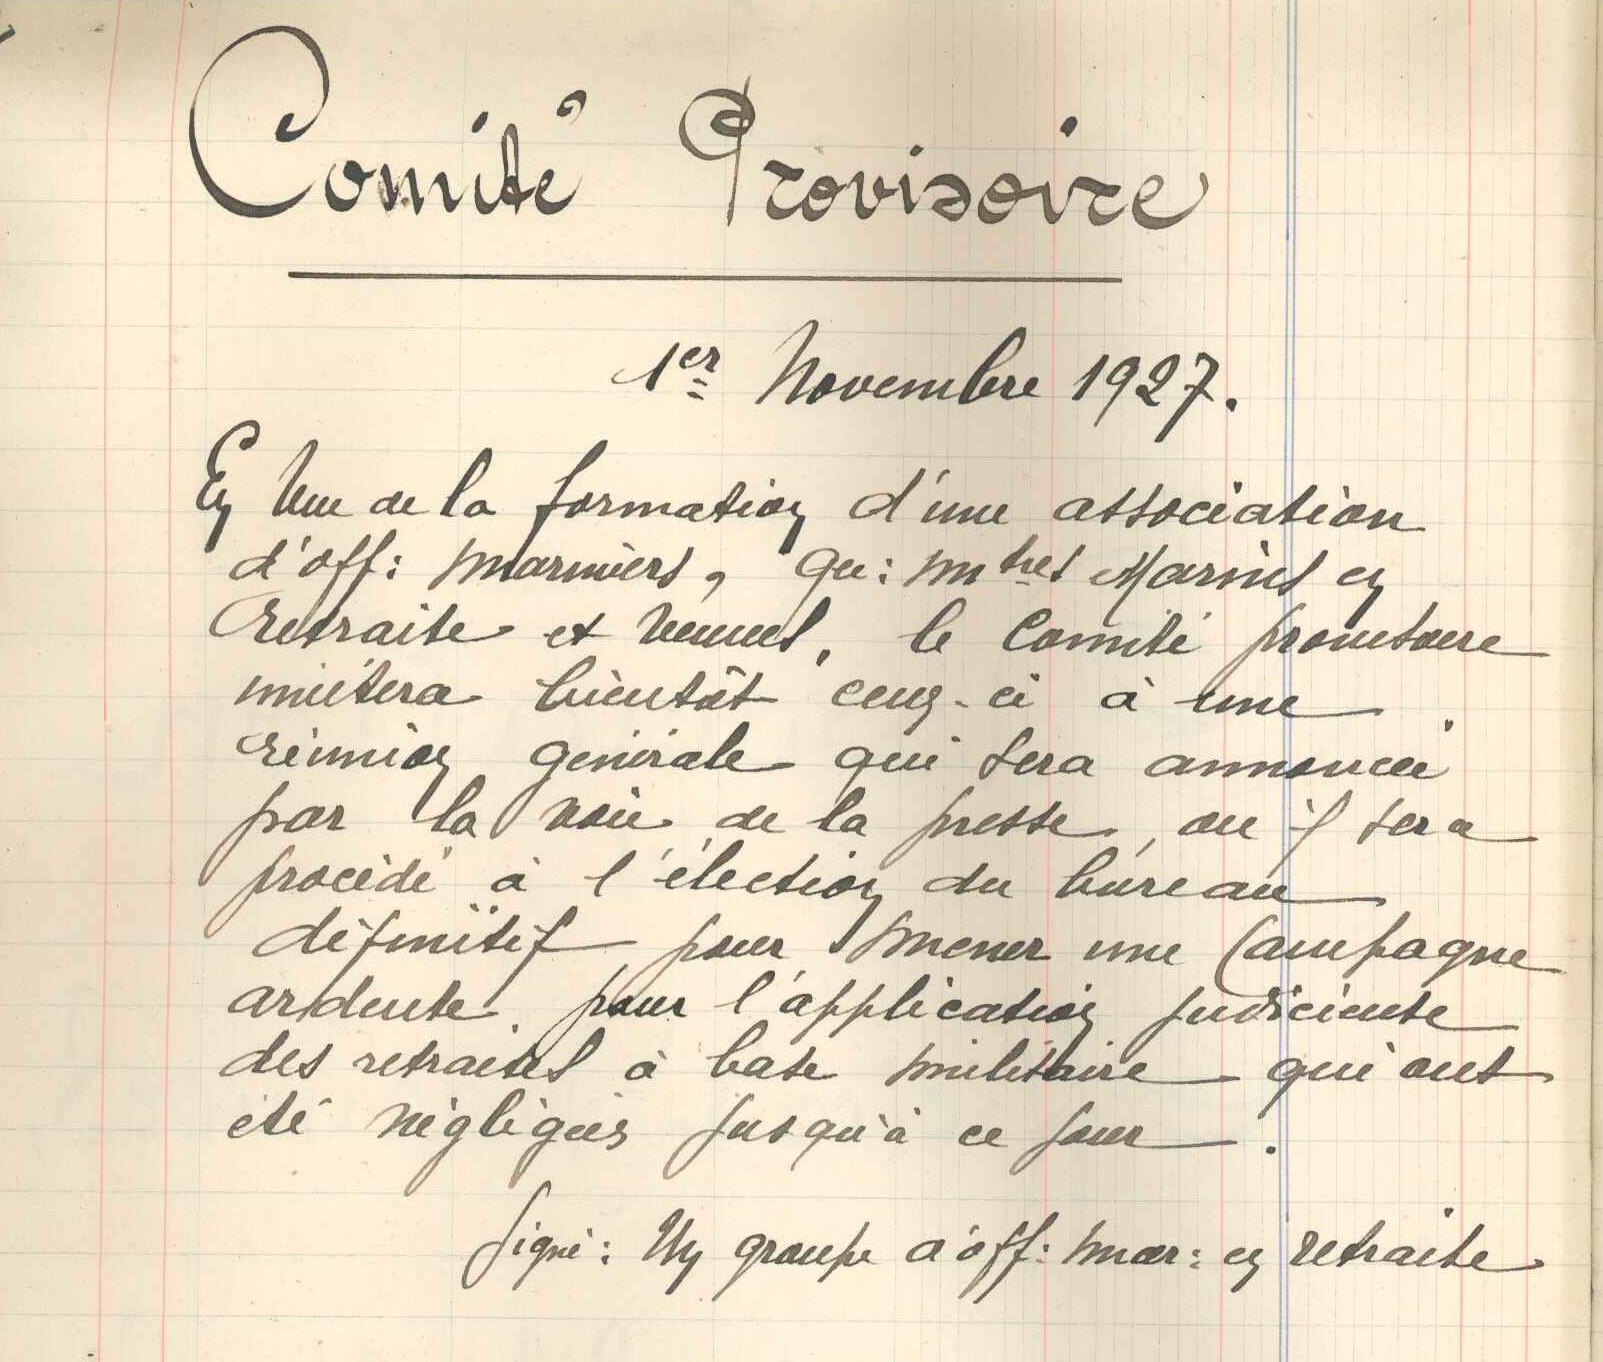 Comité Provisoire
1er Novembre 1927.
En vue de la formation d'une association
d'off: mariniers, Qu: mtres Marins en
retraite et veuves, le Comité provisoire
invitera bientôt ceux-ci à une
réunion générale qui sera annoncée
par la voie de la presse, où il sera
procédé à l'élection du bureau
définitif pour mener une Campagne
ardente pour l'application judicieuse
des retraites à base militaire qui ont
été négligées jusqu'à ce jour.
Signé: Un groupe d'off: mar: en retraite